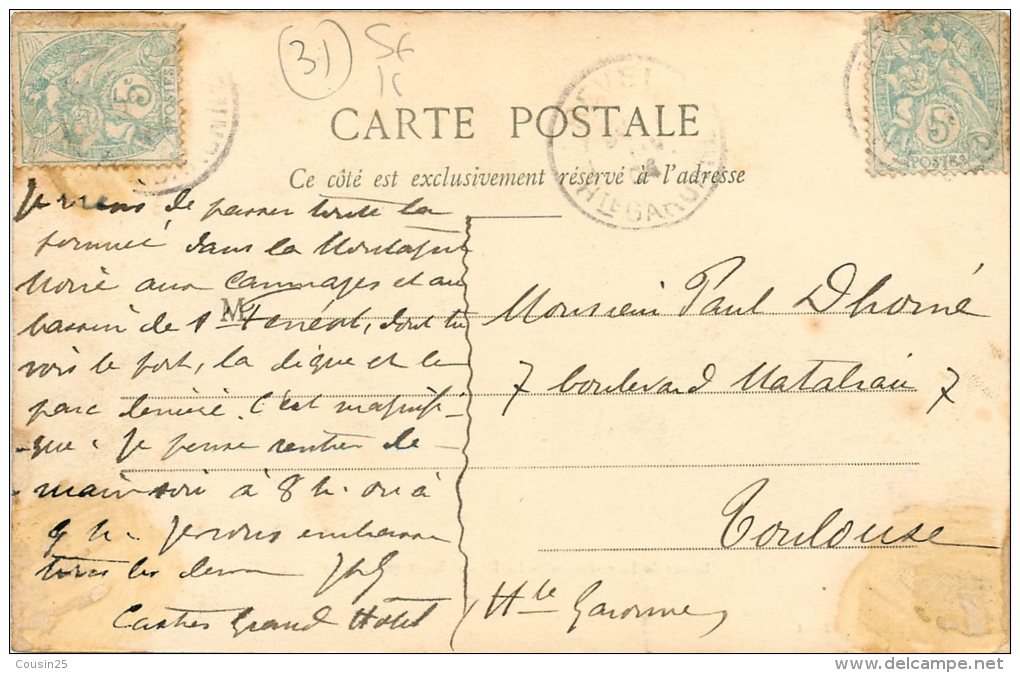 (31)
5c
POSTES
5c
POSTES
CARTE POSTALE
Ce côté est exclusivement réservé à l'adresse
REVEL
Hte GARONNE
Je viens de passer toute la
journée dans la Montagne
Noire aux Cammazes et au
bassin de St Ferréol, dont tu
vois le port, la digue et le
parc derrière. C'est magnifi-
-que. Je pense rentrer de-
-main soir à 8 h. ou à
9 h. Je vous embrasse
tous les deux
Castres Grand Hotel
M
Monsieur Paul Dhomé
7 boulevard Matabiau 7
Toulouse
Hte Garonne
Cousin25
http://www.delcampe.net